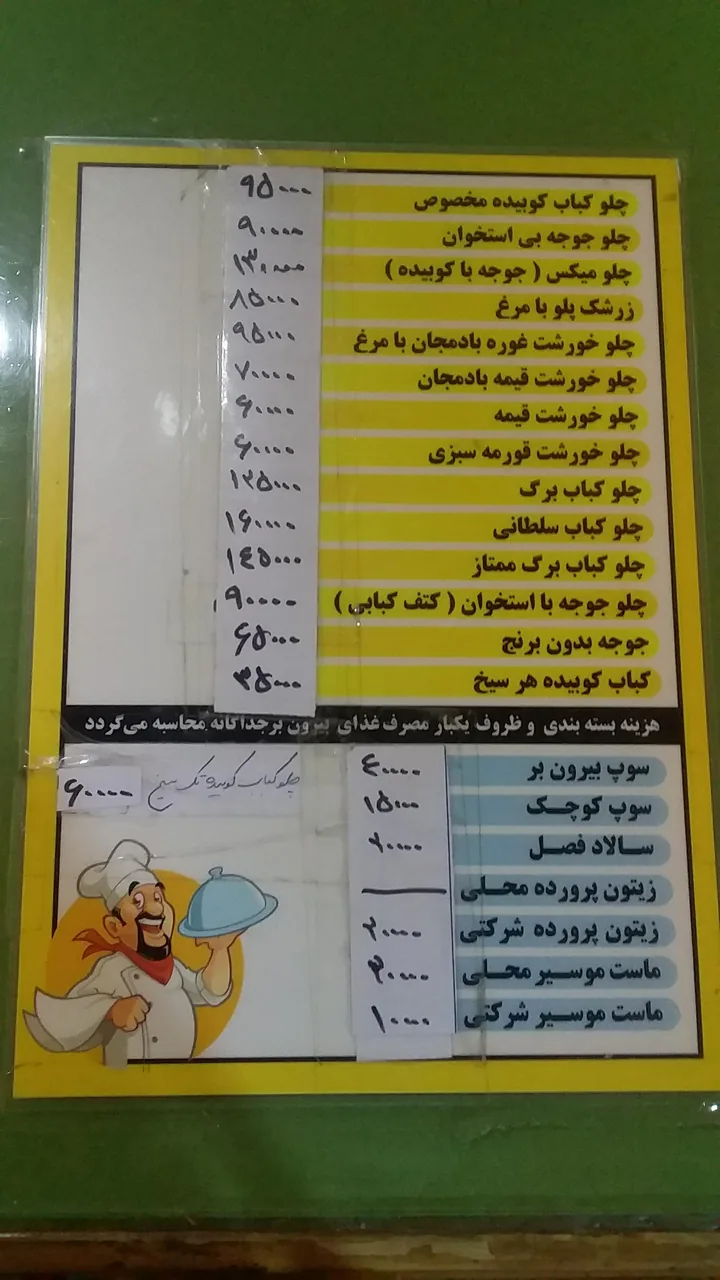 چلو کباب کوبیده مخصوص ۹۵۰۰۰
چلو جوجه بی استخوان ۹۰۰۰۰
چلو میکس ( جوجه با کوبیده ) ۱۳۰۰۰۰
زرشک پلو با مرغ ۸۵۰۰۰
چلو خورشت غوره بادمجان با مرغ ۹۵۰۰۰
چلو خورشت قیمه بادمجان ۷۰۰۰۰
چلو خورشت قیمه ۶۰۰۰۰
چلو خورشت قورمه سبزی ۶۰۰۰۰
چلو کباب برگ ۱۲۵۰۰۰
چلو کباب سلطانی ۱۶۰۰۰۰
چلو کباب برگ ممتاز ۱۴۵۰۰۰
چلو جوجه با استخوان ( کتف کبابی ) ۹۰۰۰۰
جوجه بدون برنج ۶۵۰۰۰
کباب کوبیده هر سیخ ۳۵۰۰۰
هزینه بسته بندی و ظروف یکبار مصرف غذای بیرون بر جداگانه محاسبه می‌گردد
سوپ بیرون بر ۴۰۰۰۰
سوپ کوچک ۱۵۰۰۰
سالاد فصل ۲۰۰۰۰
زیتون پرورده محلی
زیتون پرورده شرکتی ۲۰۰۰۰
ماست موسیر محلی ۳۰۰۰۰
ماست موسیر شرکتی ۱۰۰۰۰
چلو کباب کوبیده تک سیخ ۶۰۰۰۰